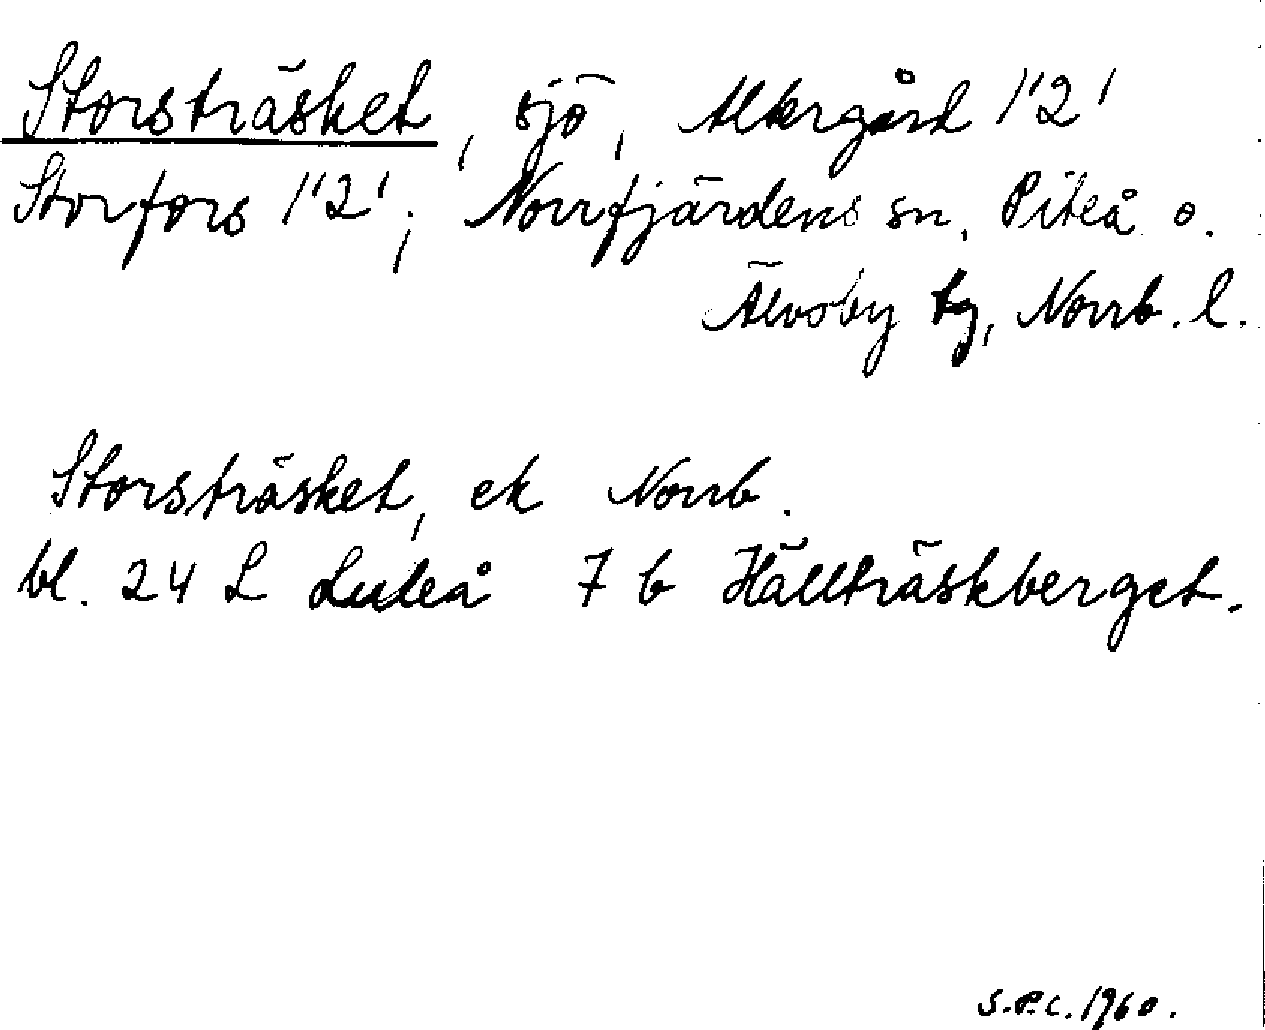 Storsträsket, sjö, Altergård 1'2'
Storfors 1'2'; Norrfjärdens sn, Piteå o.
Älvsby tg, Norrb. l.
Storsträsket, ek Norrb.
bl. 24 L Luleå 7 b Hällträskberget.
S.P.C. 1960.